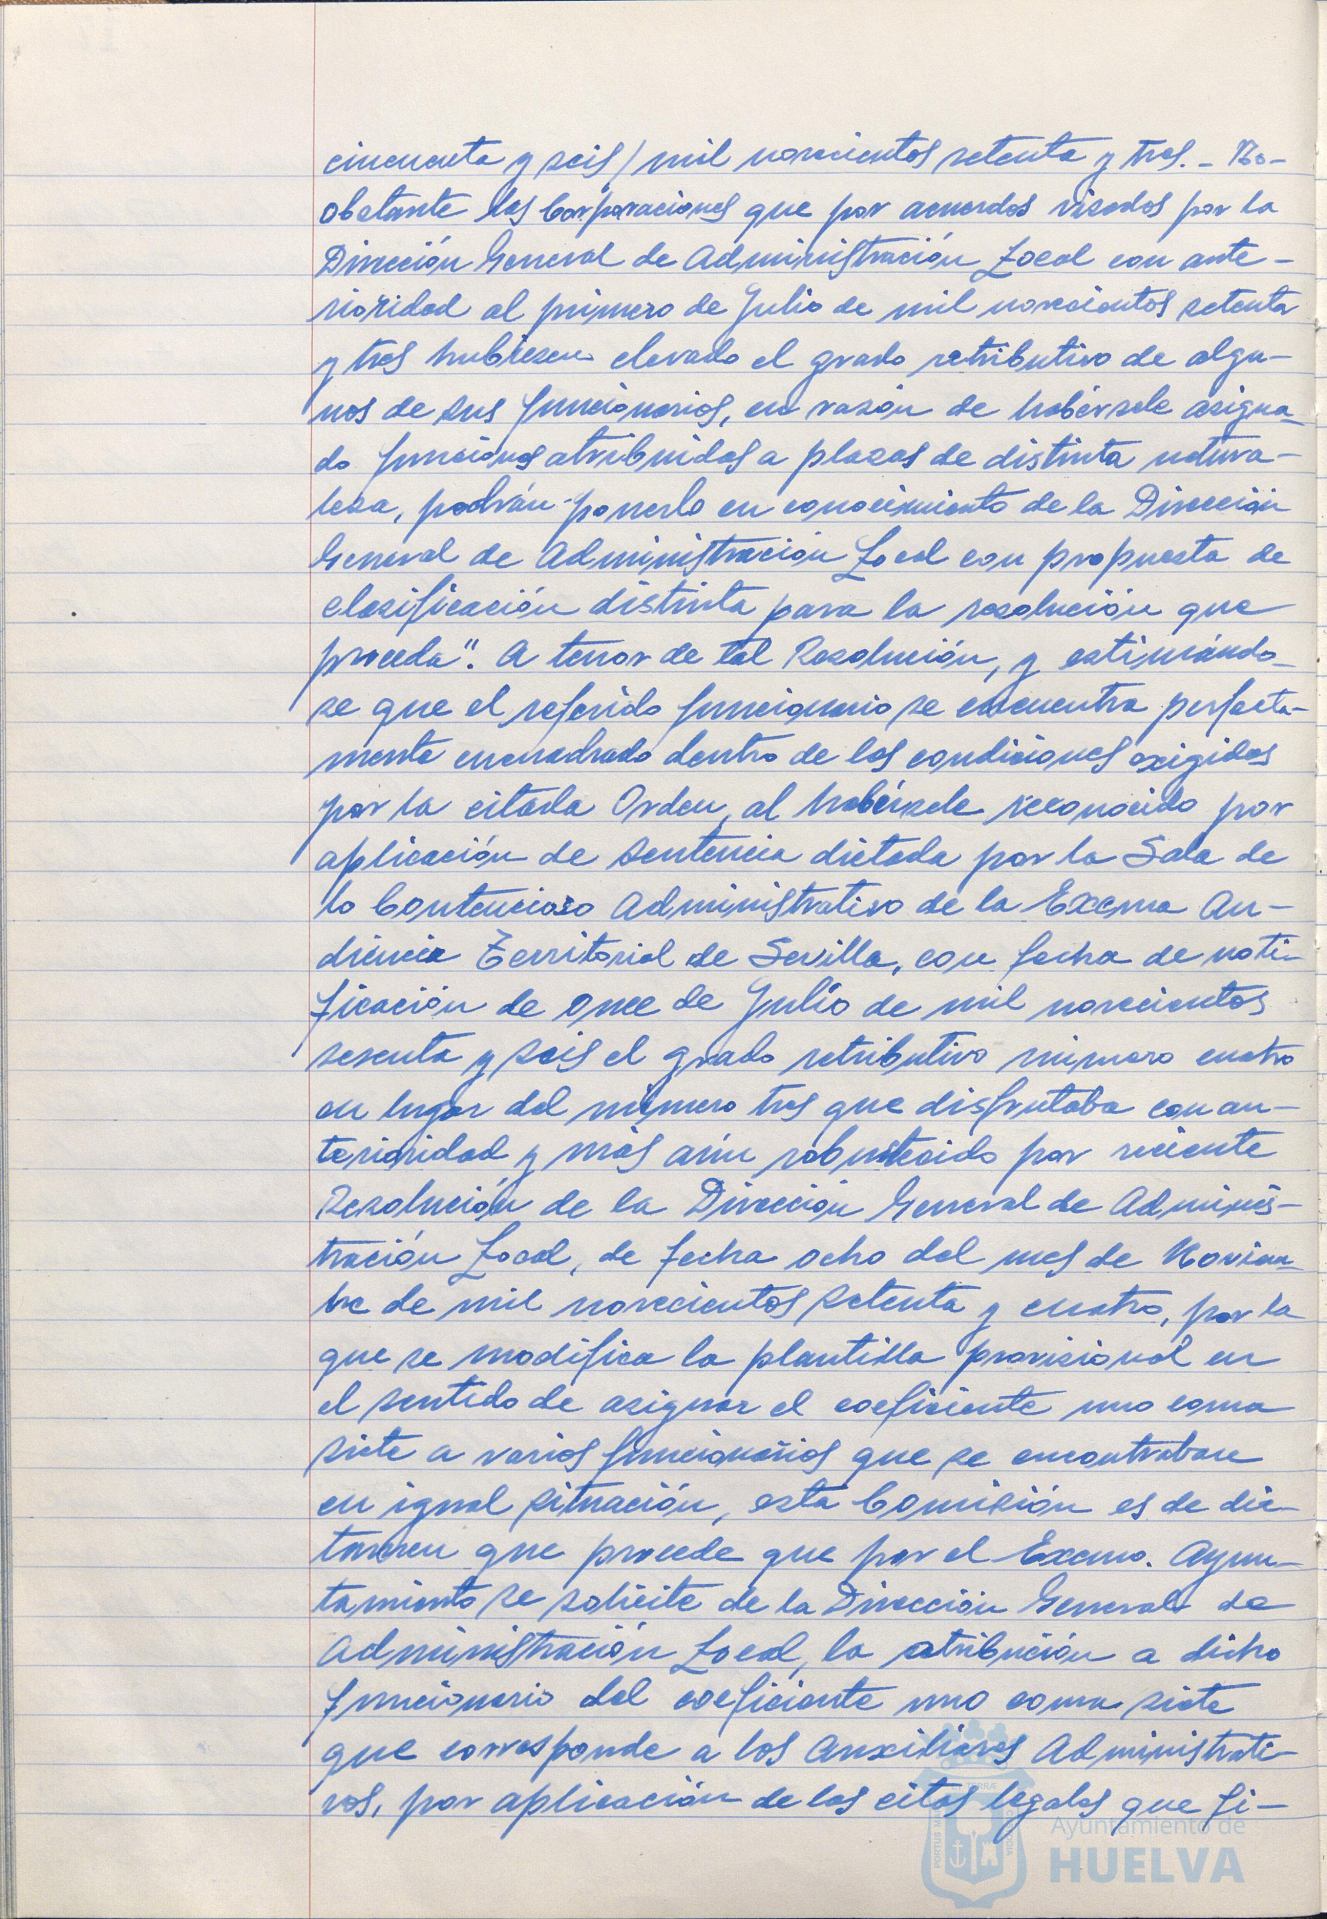 cincuenta y seis/mil novecientos setenta y tres. - No-
obstante las Corporaciones que por acuerdos visados por la
Dirección General de Administración Local con ante-
rioridad al primero de Julio de mil novecientos setenta
y tres hubiesen elevado el grado retributivo de algu-
nos de sus funcionarios, en razón de habérsele asigna-
do funciones atribuidas a plazas de distinta natura-
leza, podrán ponerlo en conocimiento de la Dirección
General de Administración Local con propuesta de
clasificación distinta para la resolución que
proceda". A tenor de tal Resolución, y estimándo-
se que el referido funcionario se encuentra perfecta-
mente encuadrado dentro de las condiciones exigidas
por la citada Orden, al habérsele reconocido por
aplicación de sentencia dictada por la Sala de
lo Contencioso Administrativo de la Excma Au-
diencia Territorial de Sevilla, con fecha de noti-
ficación de once de Julio de mil novecientos
sesenta y seis el grado retributivo número cuatro
en lugar del número tres que disfrutaba con an-
terioridad y más aún robustecido por reciente
Resolución de la Dirección General de Adminis-
tración Local, de fecha ocho del mes de Noviem-
bre de mil novecientos setenta y cuatro, por la
que se modifica la plantilla provisional en
el sentido de asignar el coeficiente uno coma
siete a varios funcionarios que se encontraban
en igual situación, esta Comisión es de dic-
tamen que procede que por el Excmo. Ayun-
tamiento se solicite de la Dirección General de
Administración Local, la atribución a dicho
funcionario del coeficiente uno coma siete
que corresponde a los Auxiliares Administrati-
vos, por aplicación de las citas legales que fi-
Ayuntamiento de
HUELVA